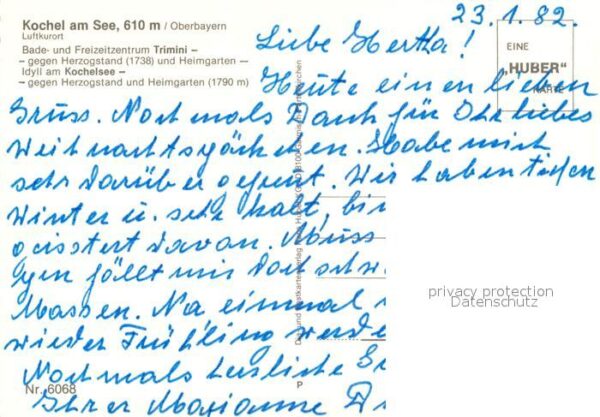 Kochel am See, 610 m / Oberbayern
Luftkurort
Bade- und Freizeitzentrum Trimini –
– gegen Herzogstand (1738) und Heimgarten –
Idyll am Kochelsee –
– gegen Herzogstand und Heimgarten (1790 m)
23.1.82.
EINE
„HUBER“
KARTE
Liebe Hertha!
Heute einen lieben
Gruss. Nochmals Dank für Ihr liebes
Weihnachtspäckchen. Habe mich
sehr darüber gefreut. Wir haben tiefen
Winter u. sehr kalt, bin
geistert davon. Muss
gen fällt mir doch schw
Massen. Na einmal
wieder Frühling werde
Nochmals herzliche Gr
Ihrer Marianne
Nr. 6068
P
privacy protection
Datenschutz